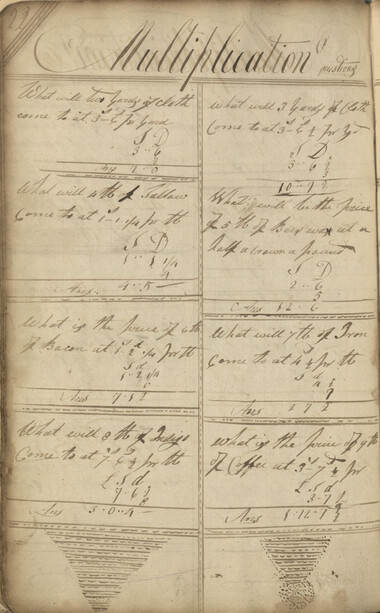 Multiplication Questions
What will two Yards of Cloth
come to at 3-6 pr Yard
S D
3-6
2
7-0
What will 4 lb of Tallow
Come to at 1-1 1/4 pr lb
S D
1-1 1/4
4
Ans 4-5
What is the price of 6 lb
of Bacon at 1-2 1/4 pr lb
S d
1-2 1/4
6
Ans 7-1 1/2
What will 8 lb of Indigo
Come to at 7-6 1/2 pr lb
£ S d
7-6 1/2
8
Ans 3-0-4
What will 3 Yards of Cloth
Come to at 3-6 1/2 pr Yd
S D
3-6 1/2
3
10-7 1/2
What will be the price
of 5 lb of Bees wax at a
half a crown a pound
S D
2-6
5
Ans 12-6
What will 7 lb of Iron
Come to at 4 1/2 pr lb
S d
4 1/2
7
2 7 1/2
What is the price of 9 lb
of Coffee at 3-7 1/2 pr lb
£ S d
3-7 1/2
9
Ans 1-12-7 1/2